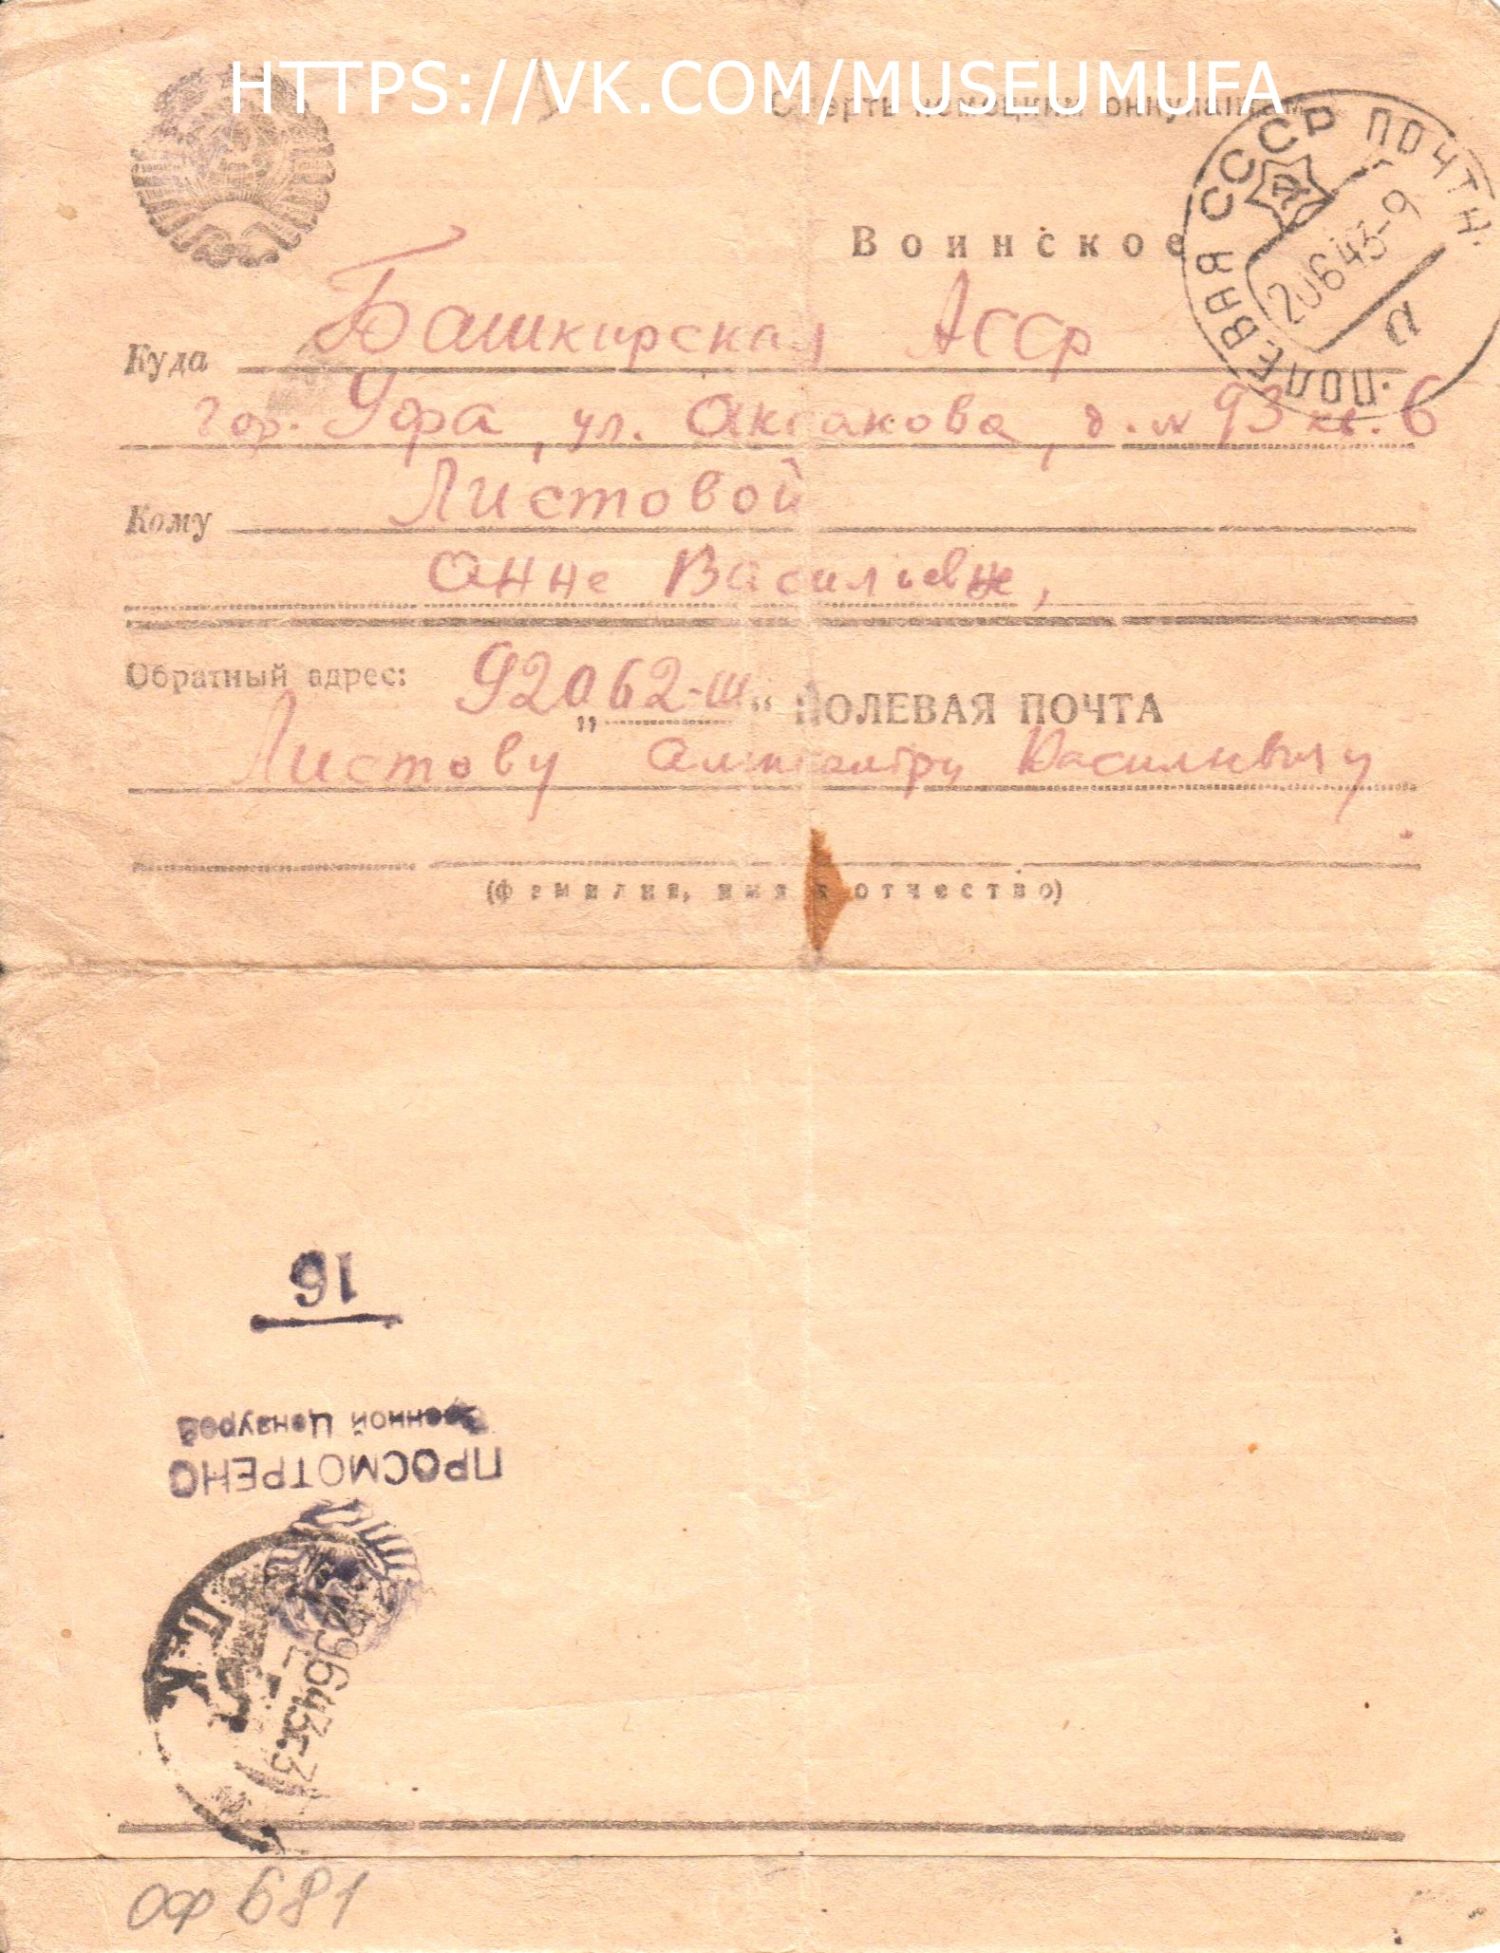 HTTPS://VK.COM/MUSEUMUFA
Смерть немецким оккупантам
Воинское
ПОЛЕВАЯ СССР ПОЧТН.
20643-9
а
Куда Башкирская АССР
гор. Уфа, ул. Аксакова, д. № 93 кв. 6
Кому Листовой
Анне Васильевне,
Обратный адрес: „92062-ш“ ПОЛЕВАЯ ПОЧТА
Листову Александру Васильевичу
(фамилия, имя и отчество)
16
Военной Цензурой
ПРОСМОТРЕНО
29643
ОФ 681